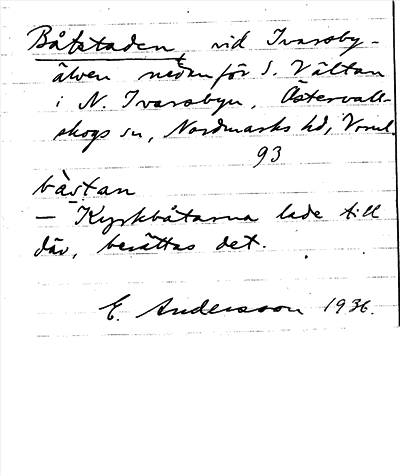 Båtstaden, vid Ivarsby-
älven nedanför S. Vältan
i N. Ivarsbyn, Östervall-
skogs sn, Nordmarks hd, Vrml.
93
bàstan
– Kyrkbåtarna lade till
där, berättas det.
E. Andersson 1936.